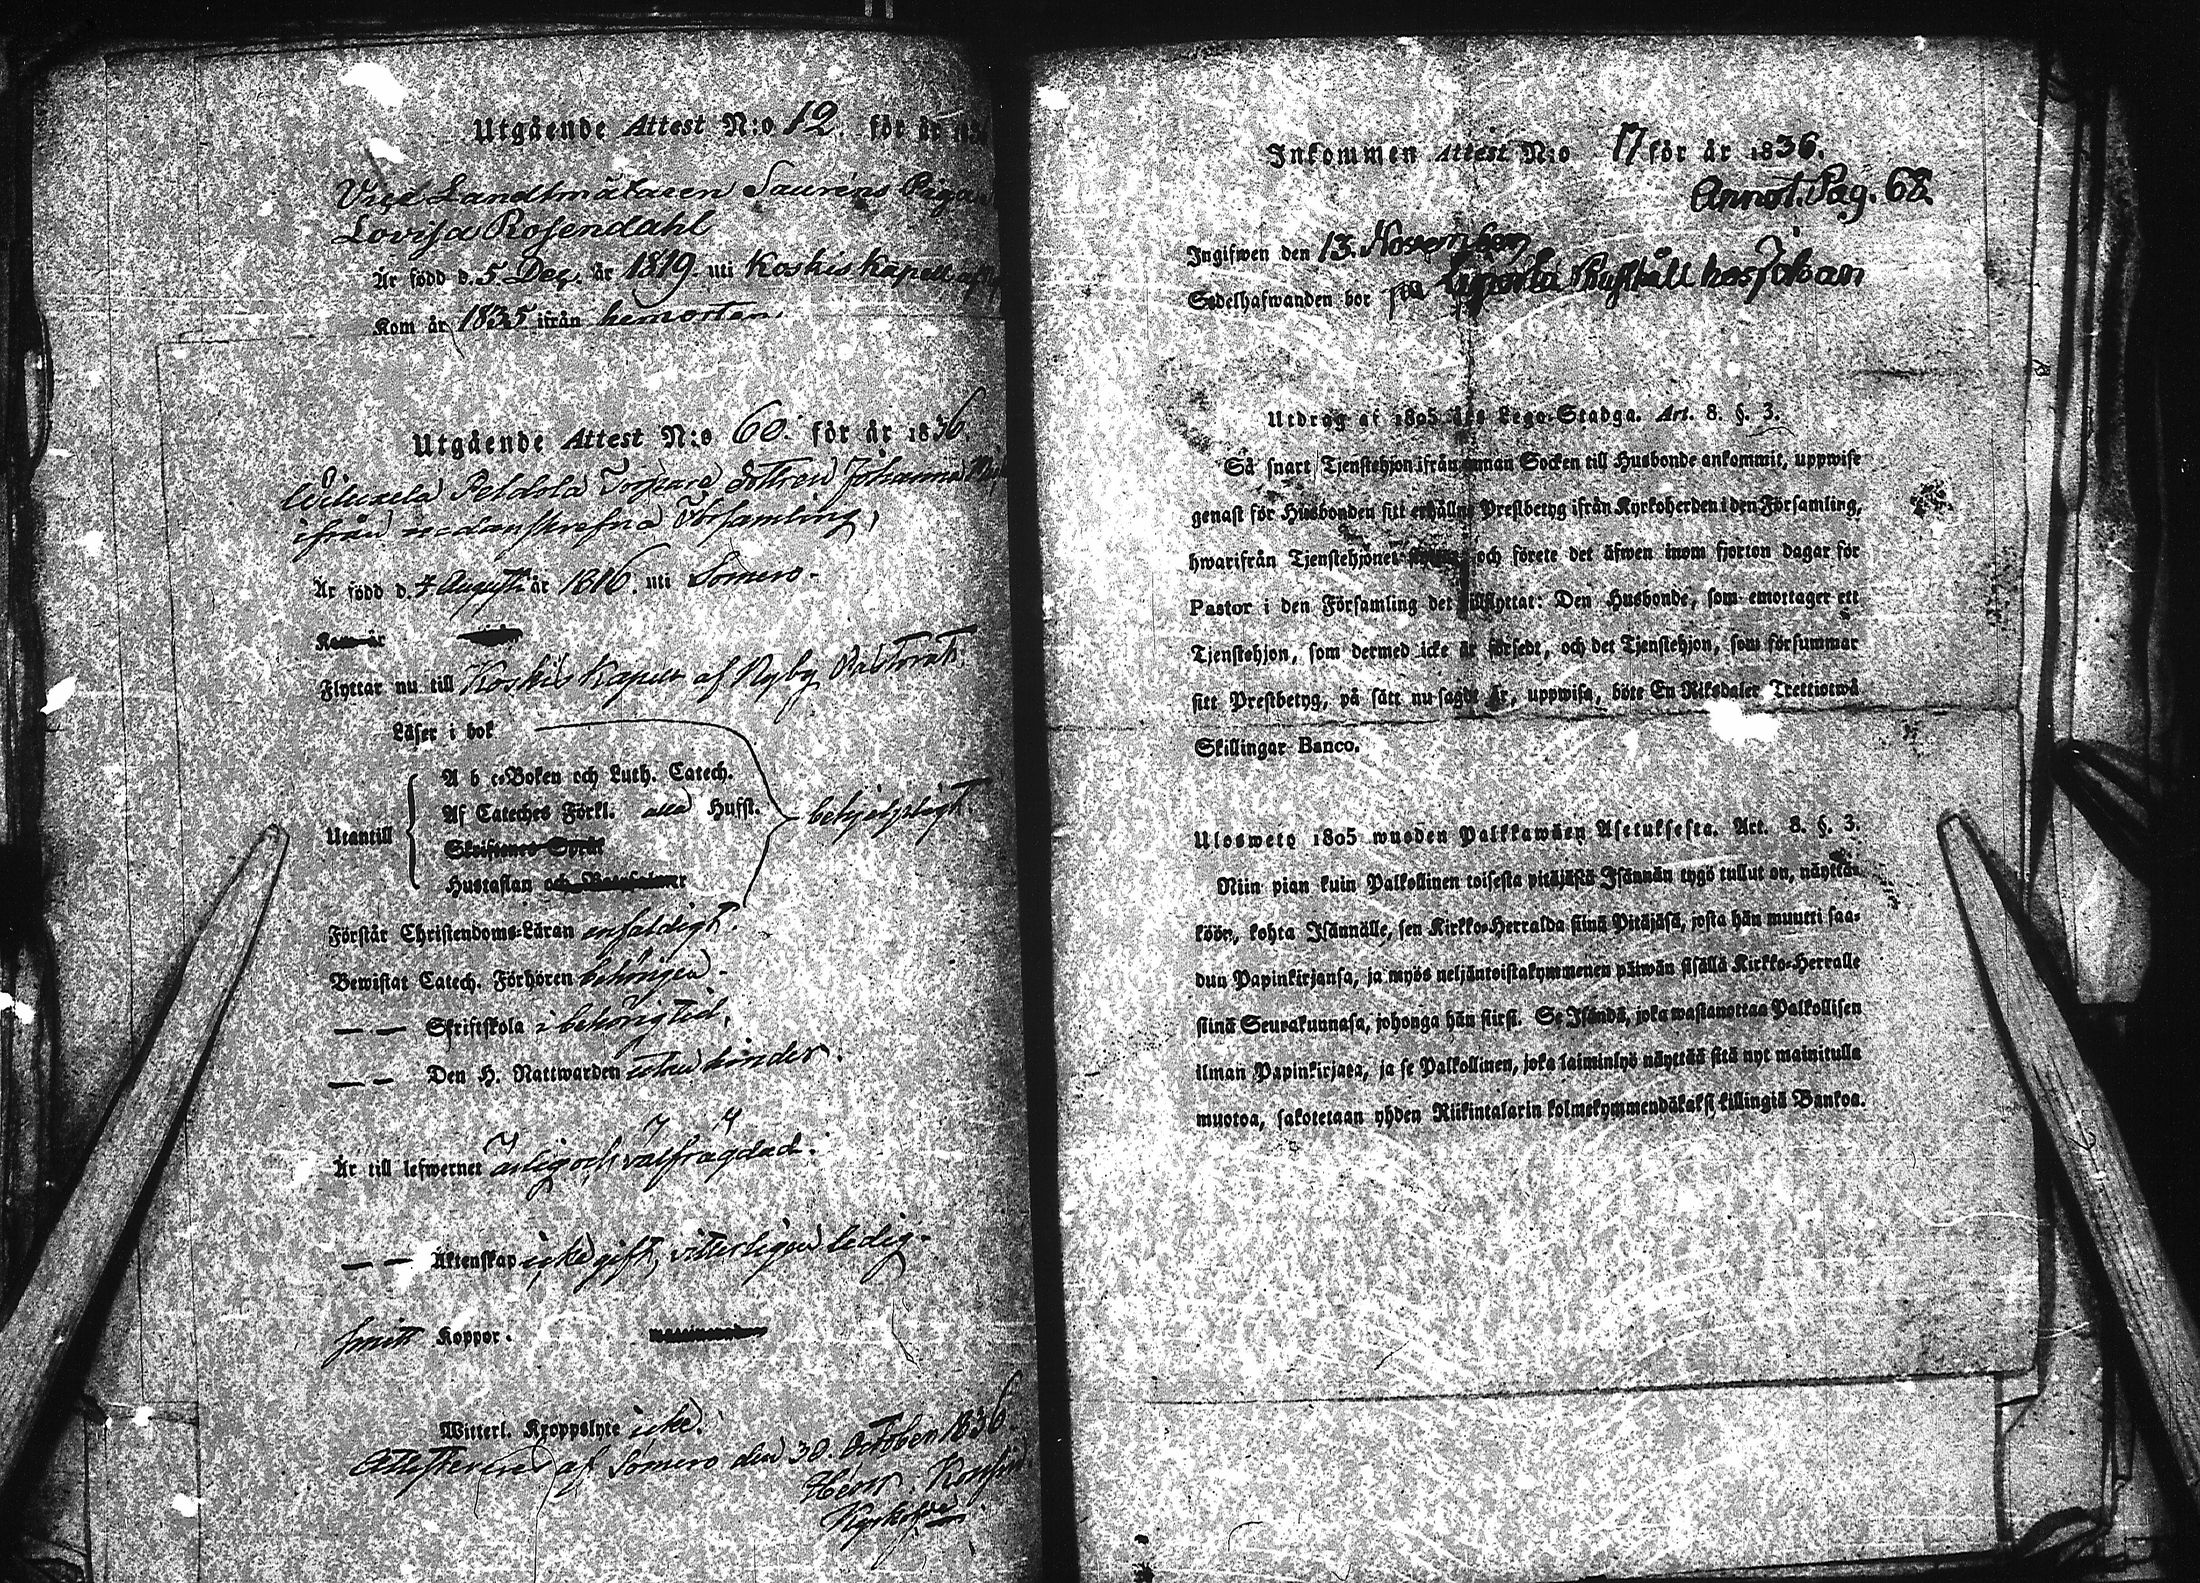 Utgående Attest N:o 12. för år
Vice Landtmätaren Sauréns Piga
Lovisa Rosendahl
Är född d. 5. Dec. år 1819. uti Koskis Kapell af
Kom år 1835 ifrån hemorten.
Utgående Attest N:o 60. för år 1836.
Peldola Torpare dottren Johanna
ifrån nedanskrefne Församling,
Är född d. 4 Augusti år 1816. uti Somero.
Kom år
Flyttar nu till Koskis Kapell af Pastorat.
Läser i bok
A b c-Boken och Luth. Catech.
Af Cateches Förkl. alla Hufst.
Utantill
behjelpligt.
Skriftenes Språk
Hustaflan och
Förstår Christendoms-Läran enfaldigt.
Bewistat Catech. Förhören behörigen.
— — Skriftskola i behörig tid,
— — Den H. Nattwarden utan hinder.
Är till lefwernet ärlig och välfrägdad.
— — Äktenskap icke gift, vitterligen ledig.
Koppor.
Witterl. Kroppslyte icke.
Attesterar af Somero den 30. October 1836.
Inkommen Attest N:o 17 för år 1836.
Annot. Pag. 68
Ingifwen den 13. November
Sedelhafwanden bor på Rusthåll hos Johan
Utdrag af 1805 års Lego-Stadga. Art. 8. §. 3.
Så snart Tjenstehjon ifrån annan Socken till Husbonde ankommit, uppwise
genast för Husbonden sitt erhållne Prestbetyg ifrån Kyrkoherden i den Församling,
hwarifrån Tjenstehjonet och förete det äfwen inom fjorton dagar för
Pastor i den Församling det tillflyttat: Den Husbonde, som emottager ett
Tjenstehjon, som dermed icke är försedt, och det Tjenstehjon, som försummar
sitt Prestbetyg, på sätt nu sagdt är, uppwisa, böte En Riksdaler Trettiotwå
Skillingar Banco.
Ulosweto 1805 wuoden Palkkawäen Asetuksesta. Art. 8. §. 3.
Niin pian kuin Palkollinen toisesta pitäjästä Isännän tygö tullut on, näyttä-
köön, kohta Isännälle, sen Kirkko-Herralda siinä Pitäjäsä, josta hän muutti saa-
dun Papinkirjansa, ja myös neljäntoistakymmenen päiwän sisällä Kirkko-Herralle
siinä Seurakunnasa, johonga hän siirsi. Se Isändä, joka wastanottaa Palkollisen
ilman Papinkirjata, ja se Palkollinen, joka laiminlyö näyttää sitä nyt mainitulla
muotoa, sakotetaan yhden Riikintalarin kolmekymmendäkaksi killingiä Bankoa.